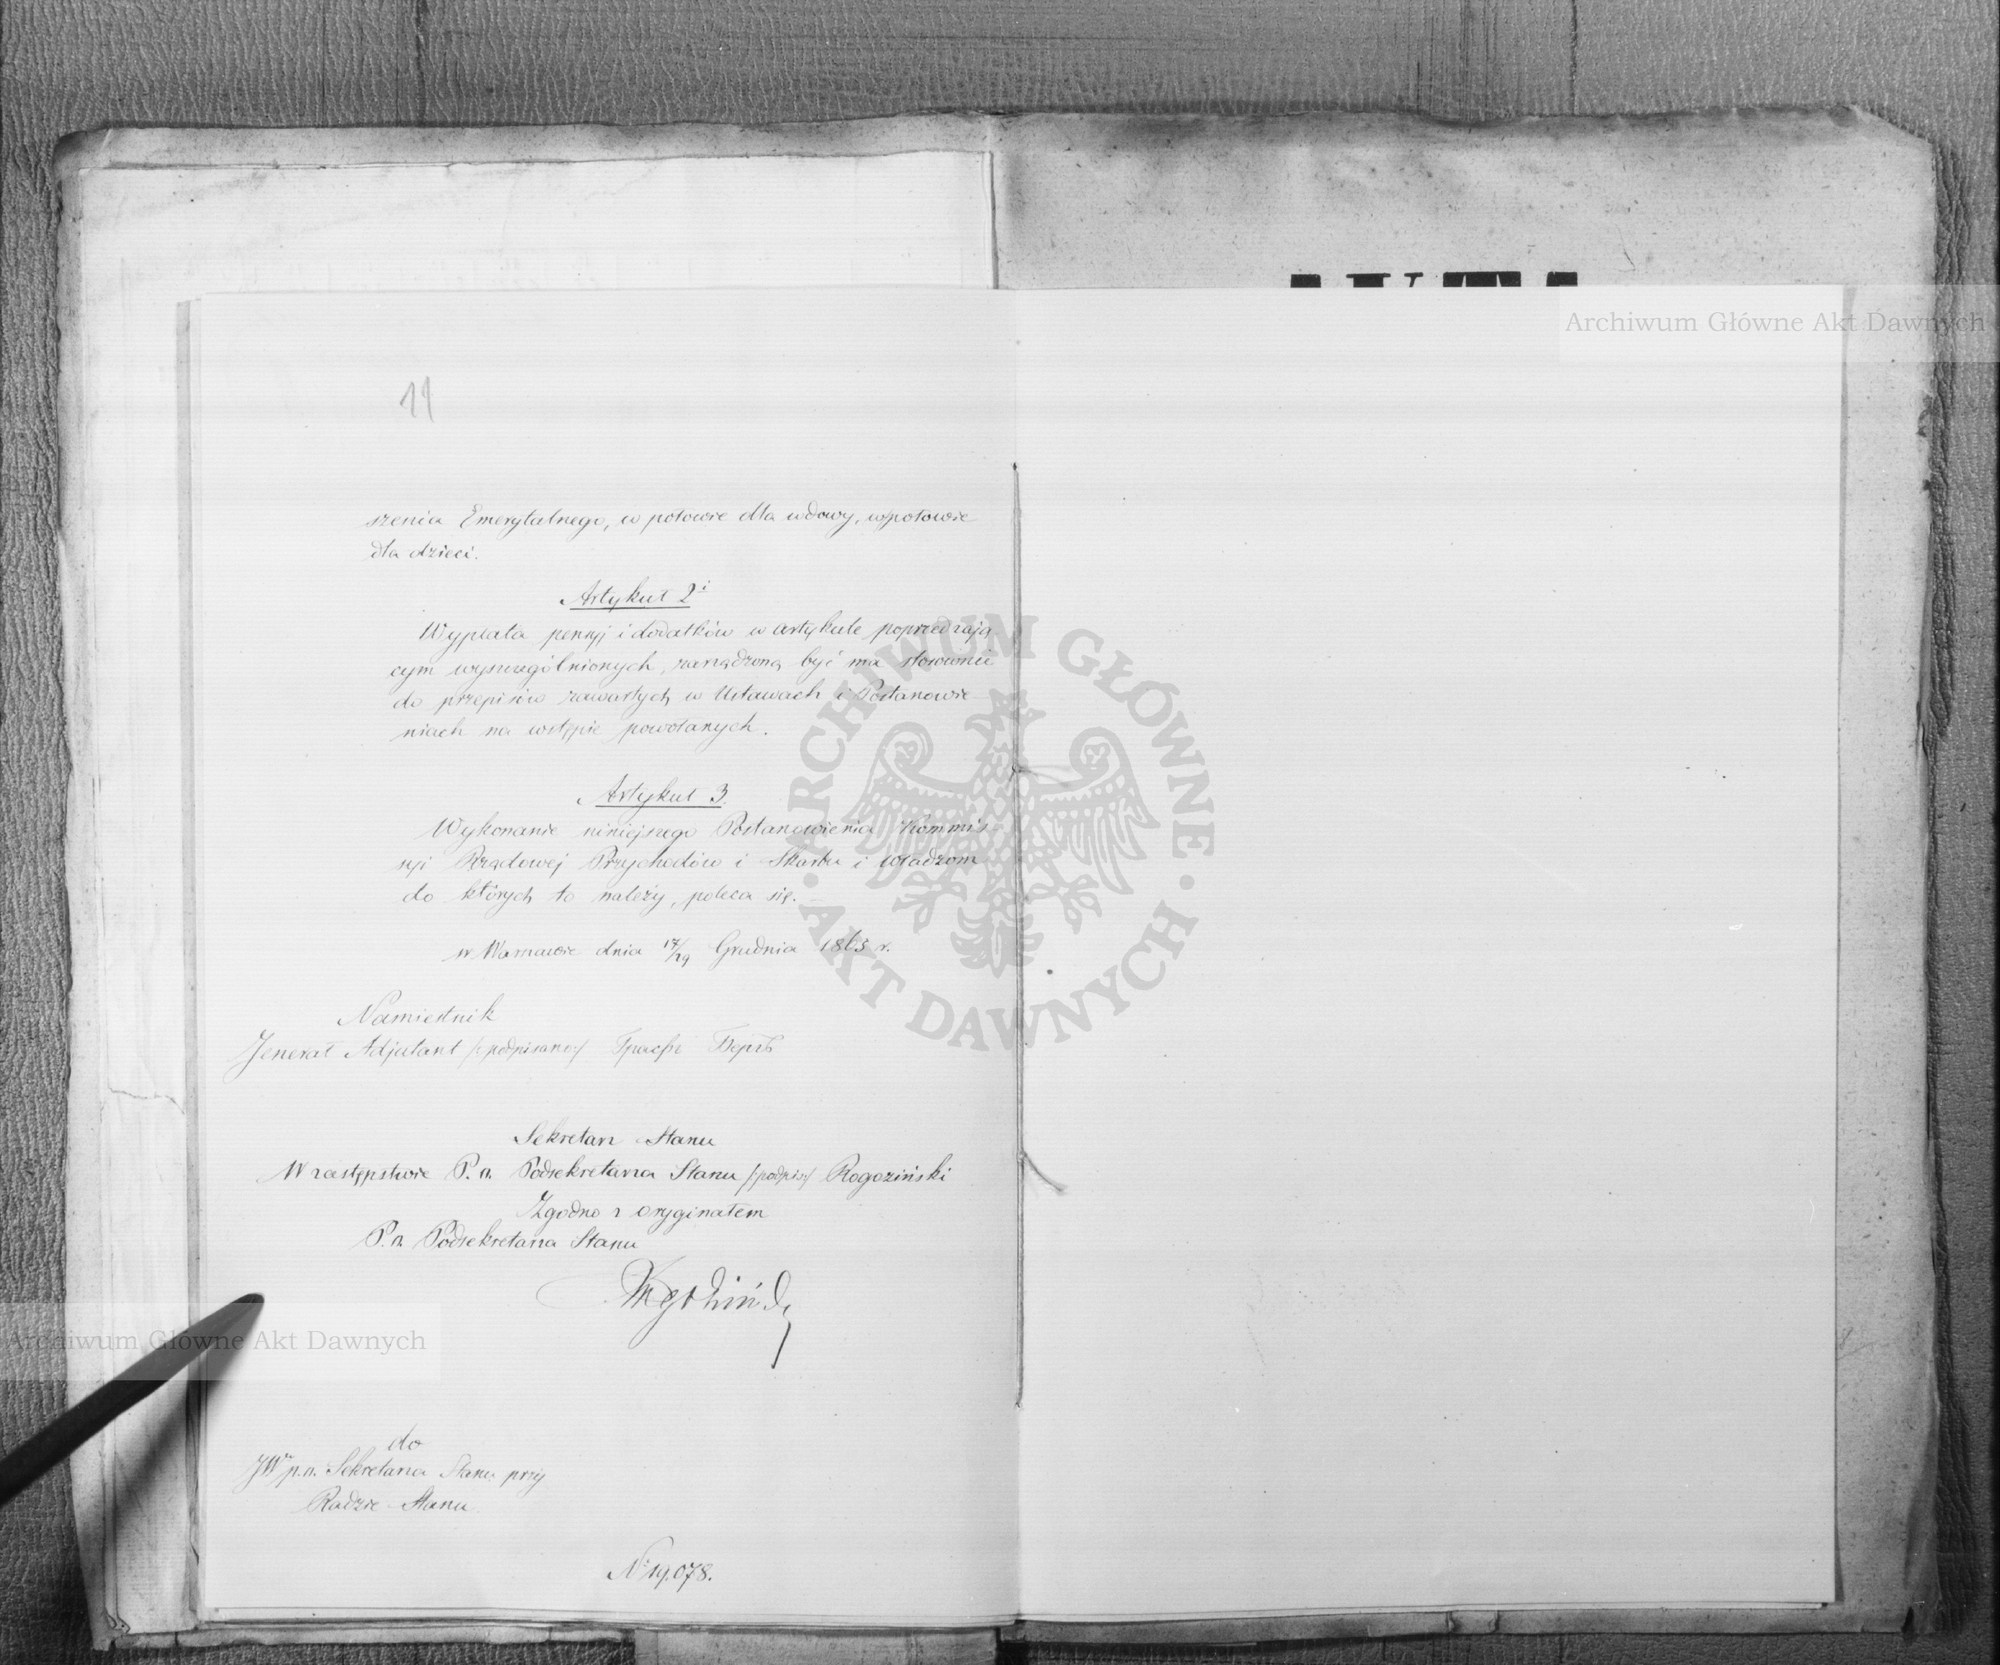 11
szenia Emerytalnego, w połowie dla wdowy, w połowie
dla dzieci.
Artykuł 2i
Wypłata pensyj i dodatków w artykule poprzedzają
cym wyszczególnionych, zarządzoną być ma stosownie
do przepisów zawartych w Ustawach i Postanowie-
niach na wstępie powołanych.
Artykuł 3.
Wykonanie niniejszego Postanowienia Kommis
syi Rządowej Przychodów i Skarbu i władzom
do których to należy, poleca się.
w Warszawie dnia 17/29 Grudnia 1863 r.
Namiestnik
Jenerał Adjutant /:podpisano:/ Графъ Бергъ
Sekretarz Stanu
W zastępstwie P. o. Podsekretarza Stanu /:podpis:/ Rogoziński
Zgodno z oryginałem
P. o. Podsekretarza Stanu
do
JW p.o. Sekretarza Stanu przy
Radzie Stanu
No 19.078.
Archiwum Główne Akt Dawnych
Archiwum Główne Akt Dawnych
ARCHIWUM GŁÓWNE • AKT DAWNYCH •